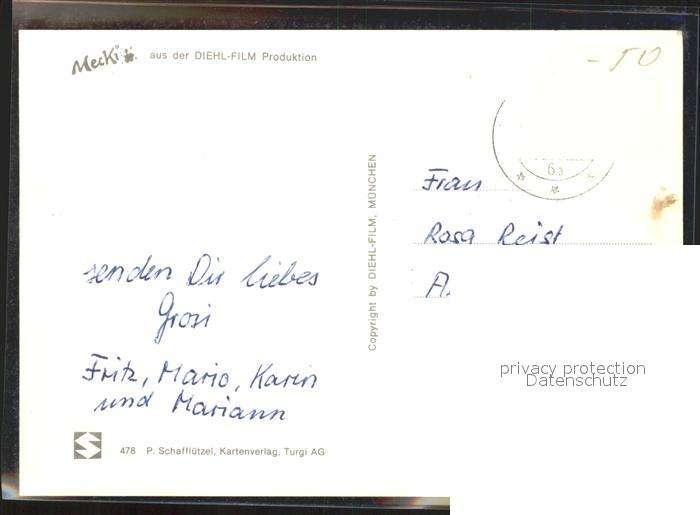 Mecki aus der DIEHL-FILM Produktion
- 50
6a
Copyright by DIEHL-FILM, MÜNCHEN
Frau
Rosa Reist
A.
senden Dir liebes
Grosi
Fritz, Mario, Karin
und Mariann
privacy protection
Datenschutz
478 P. Schafflützel, Kartenverlag, Turgi AG